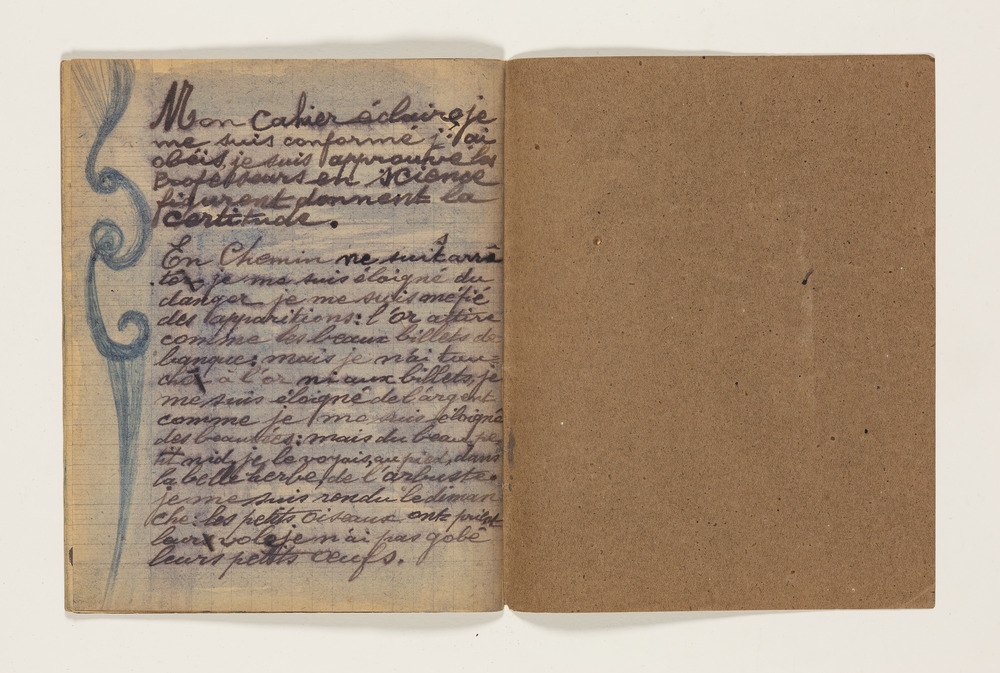 Mon Cahier éclaire, je
me suis conformé j'ai
obéis, je suis approuvé les
Professeurs en science
figurent donnent la
certitude.
En Chemin ne suit arrê
ter je me suis éloigné du
danger je me suis méfié
des apparitions: l'or attire
comme les beaux billets de
banque: mais je n'ai tou=
ché à l'or ni aux billets, je
me suis éloigné de l'argent
comme je me suis éloigné
des beautées: mais du beau pe
tit nid, je le voyais, au pied, dans
la belle herbe, de l'arbuste.
je me suis rendu le diman
che: les petits oiseaux ont
leur vole je n'ai pas gobé
leurs petits œufs.